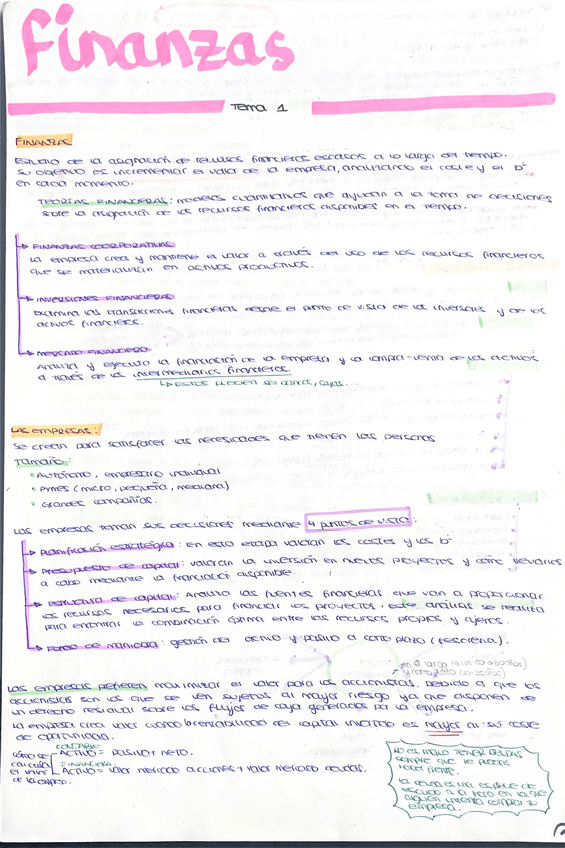 Finanzas
Tema 1
FINANZAS
Estudio de la asignación de recursos financieros escasos a lo largo del tiempo.
Su objetivo es incrementar el valor de la empresa, analizando el coste y el bº
en cada momento.
TEORÍAS FINANCIERAS: modelos cuantitativos que ayudan a la toma de decisiones
sobre la asignación de los recursos financieros disponibles en el tiempo.
FINANZAS CORPORATIVAS
La empresa crea y mantiene el valor a través del uso de los recursos financieros
que se materializan en activos productivos.
INVERSIONES FINANCIERAS
Examina las transacciones financieras desde el punto de vista de los inversores y de los
activos financieros.
MERCADO FINANCIERO
Analiza y ejecuta la financiación de la empresa y la compra-venta de los activos
a través de los intermediarios financieros.
estos pueden ser bancos, cajas...
LAS EMPRESAS:
Se crean para satisfacer las necesidades que tienen las personas
Tamaño:
Autónomo, empresario individual
PYMES (micro, pequeña, mediana)
Grandes compañías.
Las empresas toman sus decisiones mediante 4 puntos de vista:
Planificación estratégica: en esta etapa valoran los costes y los bº
Presupuesto de capital: valoran la inversión en nuevos proyectos y cómo llevarlos
a cabo mediante la financiación disponible.
Estructura de capital: Analiza las fuentes financieras que van a proporcionar
los recursos necesarios para financiar los proyectos. este análisis se realiza
para encontrar la combinación óptima entre los recursos propios y ajenos.
Fondo de maniobra: gestión del activo y pasivo a corto plazo (tesorería).
Las empresas prefieren maximizar el valor para los accionistas. Debido a que los
accionistas son los que se ven sujetos al mayor riesgo ya que disponen de
un derecho residual sobre los flujos de caja generados por la empresa.
La empresa crea valor cuando la rentabilidad del capital invertido es mayor al su coste
de oportunidad.
cómo se
calcula
el valor
de la empresa.
CONTABLE
ACTIVO = PASIVO + NETO.
FINANCIERA
ACTIVO = valor mercado acciones + valor mercado deudas.
NO ES MALO TENER DEUDAS
siempre que se puedas
hacer frente.
la deuda es una especie de
escudo a la hora en la que
alguien intenta comprar tu
empresa.